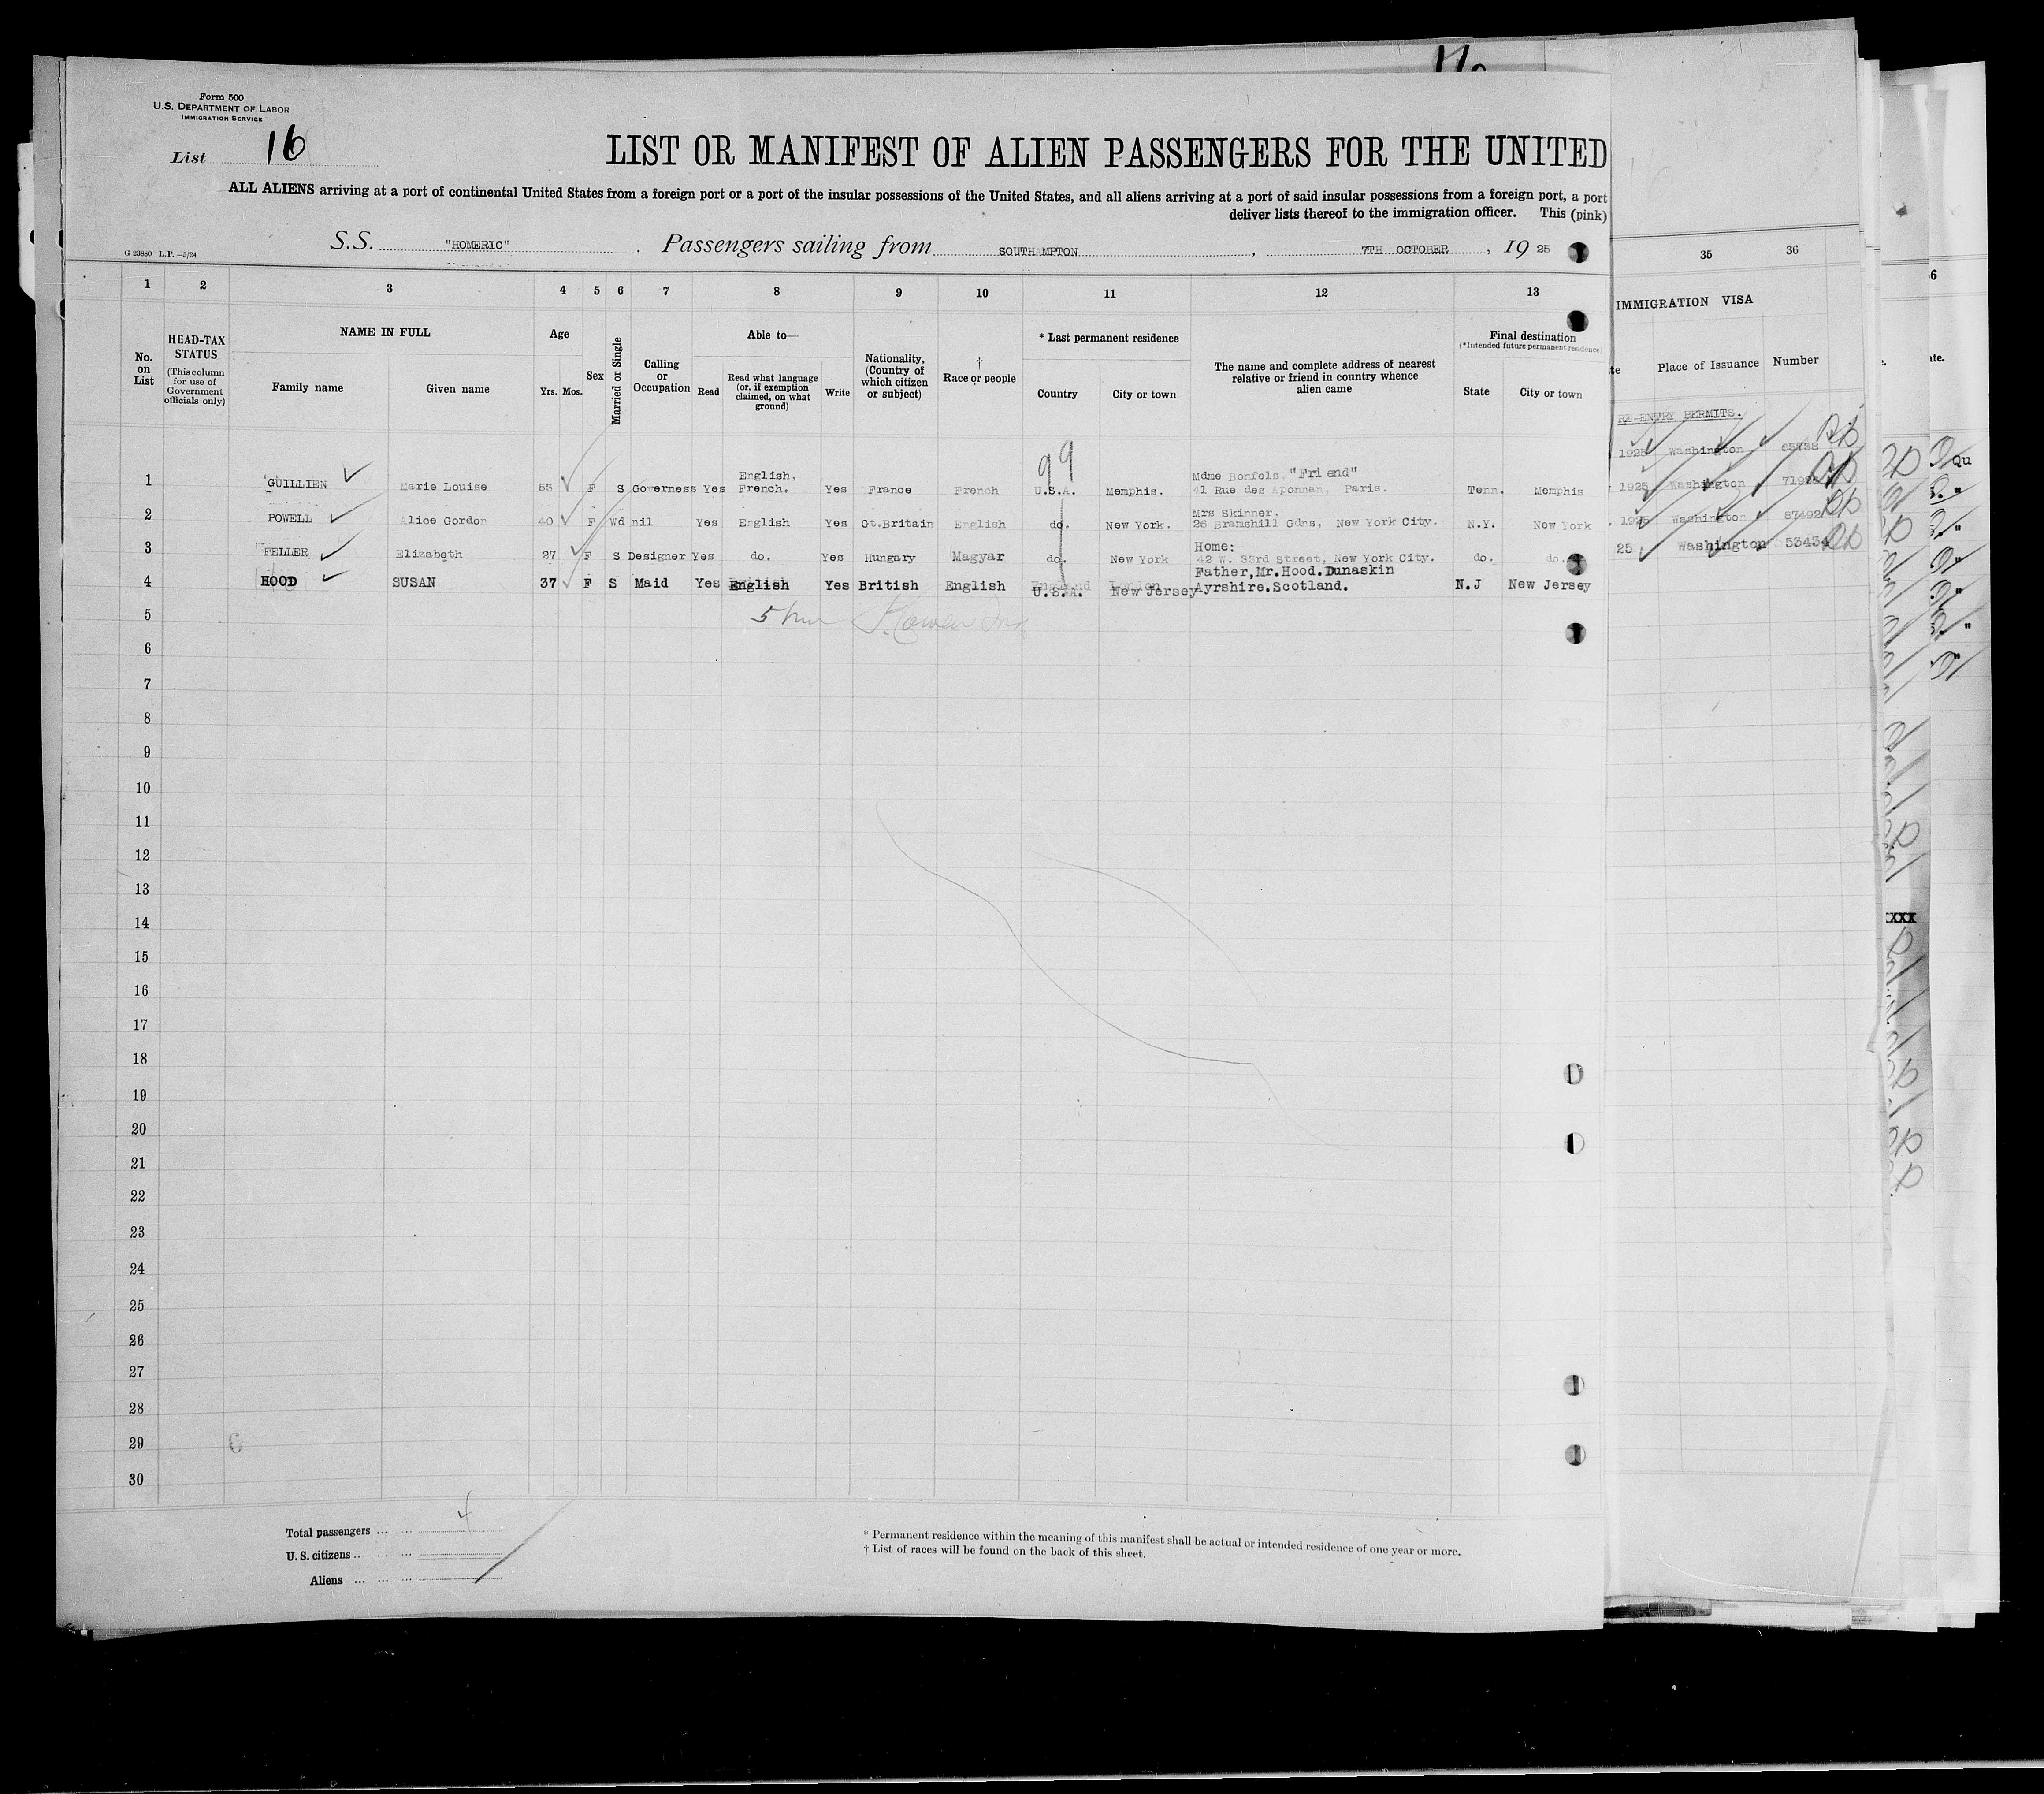 Form 500
U.S. DEPARTMENT OF LABOR
IMMIGRATION SERVICE
List 16
LIST OR MANIFEST OF ALIEN PASSENGERS FOR THE UNITED
ALL ALIENS arriving at a port of continental United States from a foreign port or a port of the insular possessions of the United States, and all aliens arriving at a port of said insular possessions from a foreign port, a port
deliver lists thereof to the immigration officer. This (pink)
S.S. "HOMERIC" . Passengers sailing from SOUTHAMPTON , 7TH OCTOBER , 19 25
G 23880 L.P.—5/24
1 2 3 4 5 6 7 8 9 10 11 12 13 35 36
No. on List
HEAD-TAX STATUS (This column for use of Government officials only)
NAME IN FULL
Family name Given name
Age
Yrs. Mos.
Sex
Married or Single
Calling or Occupation
Able to—
Read Read what language (or, if exemption claimed, on what ground) Write
Nationality, (Country of which citizen or subject)
† Race or people
* Last permanent residence
Country City or town
The name and complete address of nearest relative or friend in country whence alien came
Final destination
(*Intended future permanent residence)
State City or town
IMMIGRATION VISA
Place of Issuance Number
RE-ENTRY PERMITS.
99
1 GUILLIEN Marie Louise 53 F S Governess Yes English, French. Yes France French U.S.A. Memphis. Mdme Bonfels, "Friend" 41 Rue des Paris. Tenn. Memphis
2 POWELL Alice Gordon 40 F Wd nil Yes English Yes Gt.Britain English do. New York. Mrs Skinner, 26 Bramshill Gdns, New York City. N.Y. New York
3 FELLER Elizabeth 27 F S Designer Yes do. Yes Hungary Magyar do. New York Home: 42 W. 53rd Street, New York City. do. do.
4 HOOD SUSAN 37 F S Maid Yes English Yes British English U.S.A. New Jersey Father,Mr.Hood.Dunaskin Ayrshire.Scotland. N.J New Jersey
1925 Washington
1925 Washington
1925 Washington 87492
25 Washington 53434
5
6
7
8
9
10
11
12
13
14
15
16
17
18
19
20
21
22
23
24
25
26
27
28
29
30
6
Total passengers ... ... 4
U.S. citizens ... ... ...
Aliens ... ... ...
* Permanent residence within the meaning of this manifest shall be actual or intended residence of one year or more.
† List of races will be found on the back of this sheet.
6
Qu
XXX